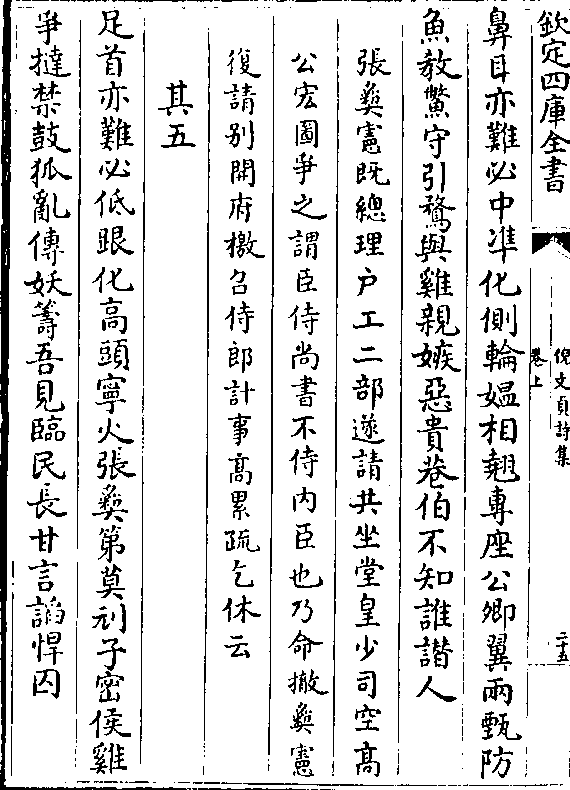 欽定四庫全書
倪文貞詩集
卷上
二十五
鼻目亦難必中準化側輪媼相翹專座公卿翼兩甄防
魚教鱉守引鶩與雞親嫉惡貴巷伯不知誰譖人
張彝憲既總理户工二部遂請共坐堂皇少司空髙
公宏圖爭之謂臣侍尚書不侍内臣也乃命撤彝憲
復請别開府檄召侍郎計事髙累疏乞休云
其五
足首亦難必低跟化高頭寜火張彝第莫刓子密侯雞
爭撻禁鼓狐亂傳妖籌吾見臨民長甘言謟悍囚